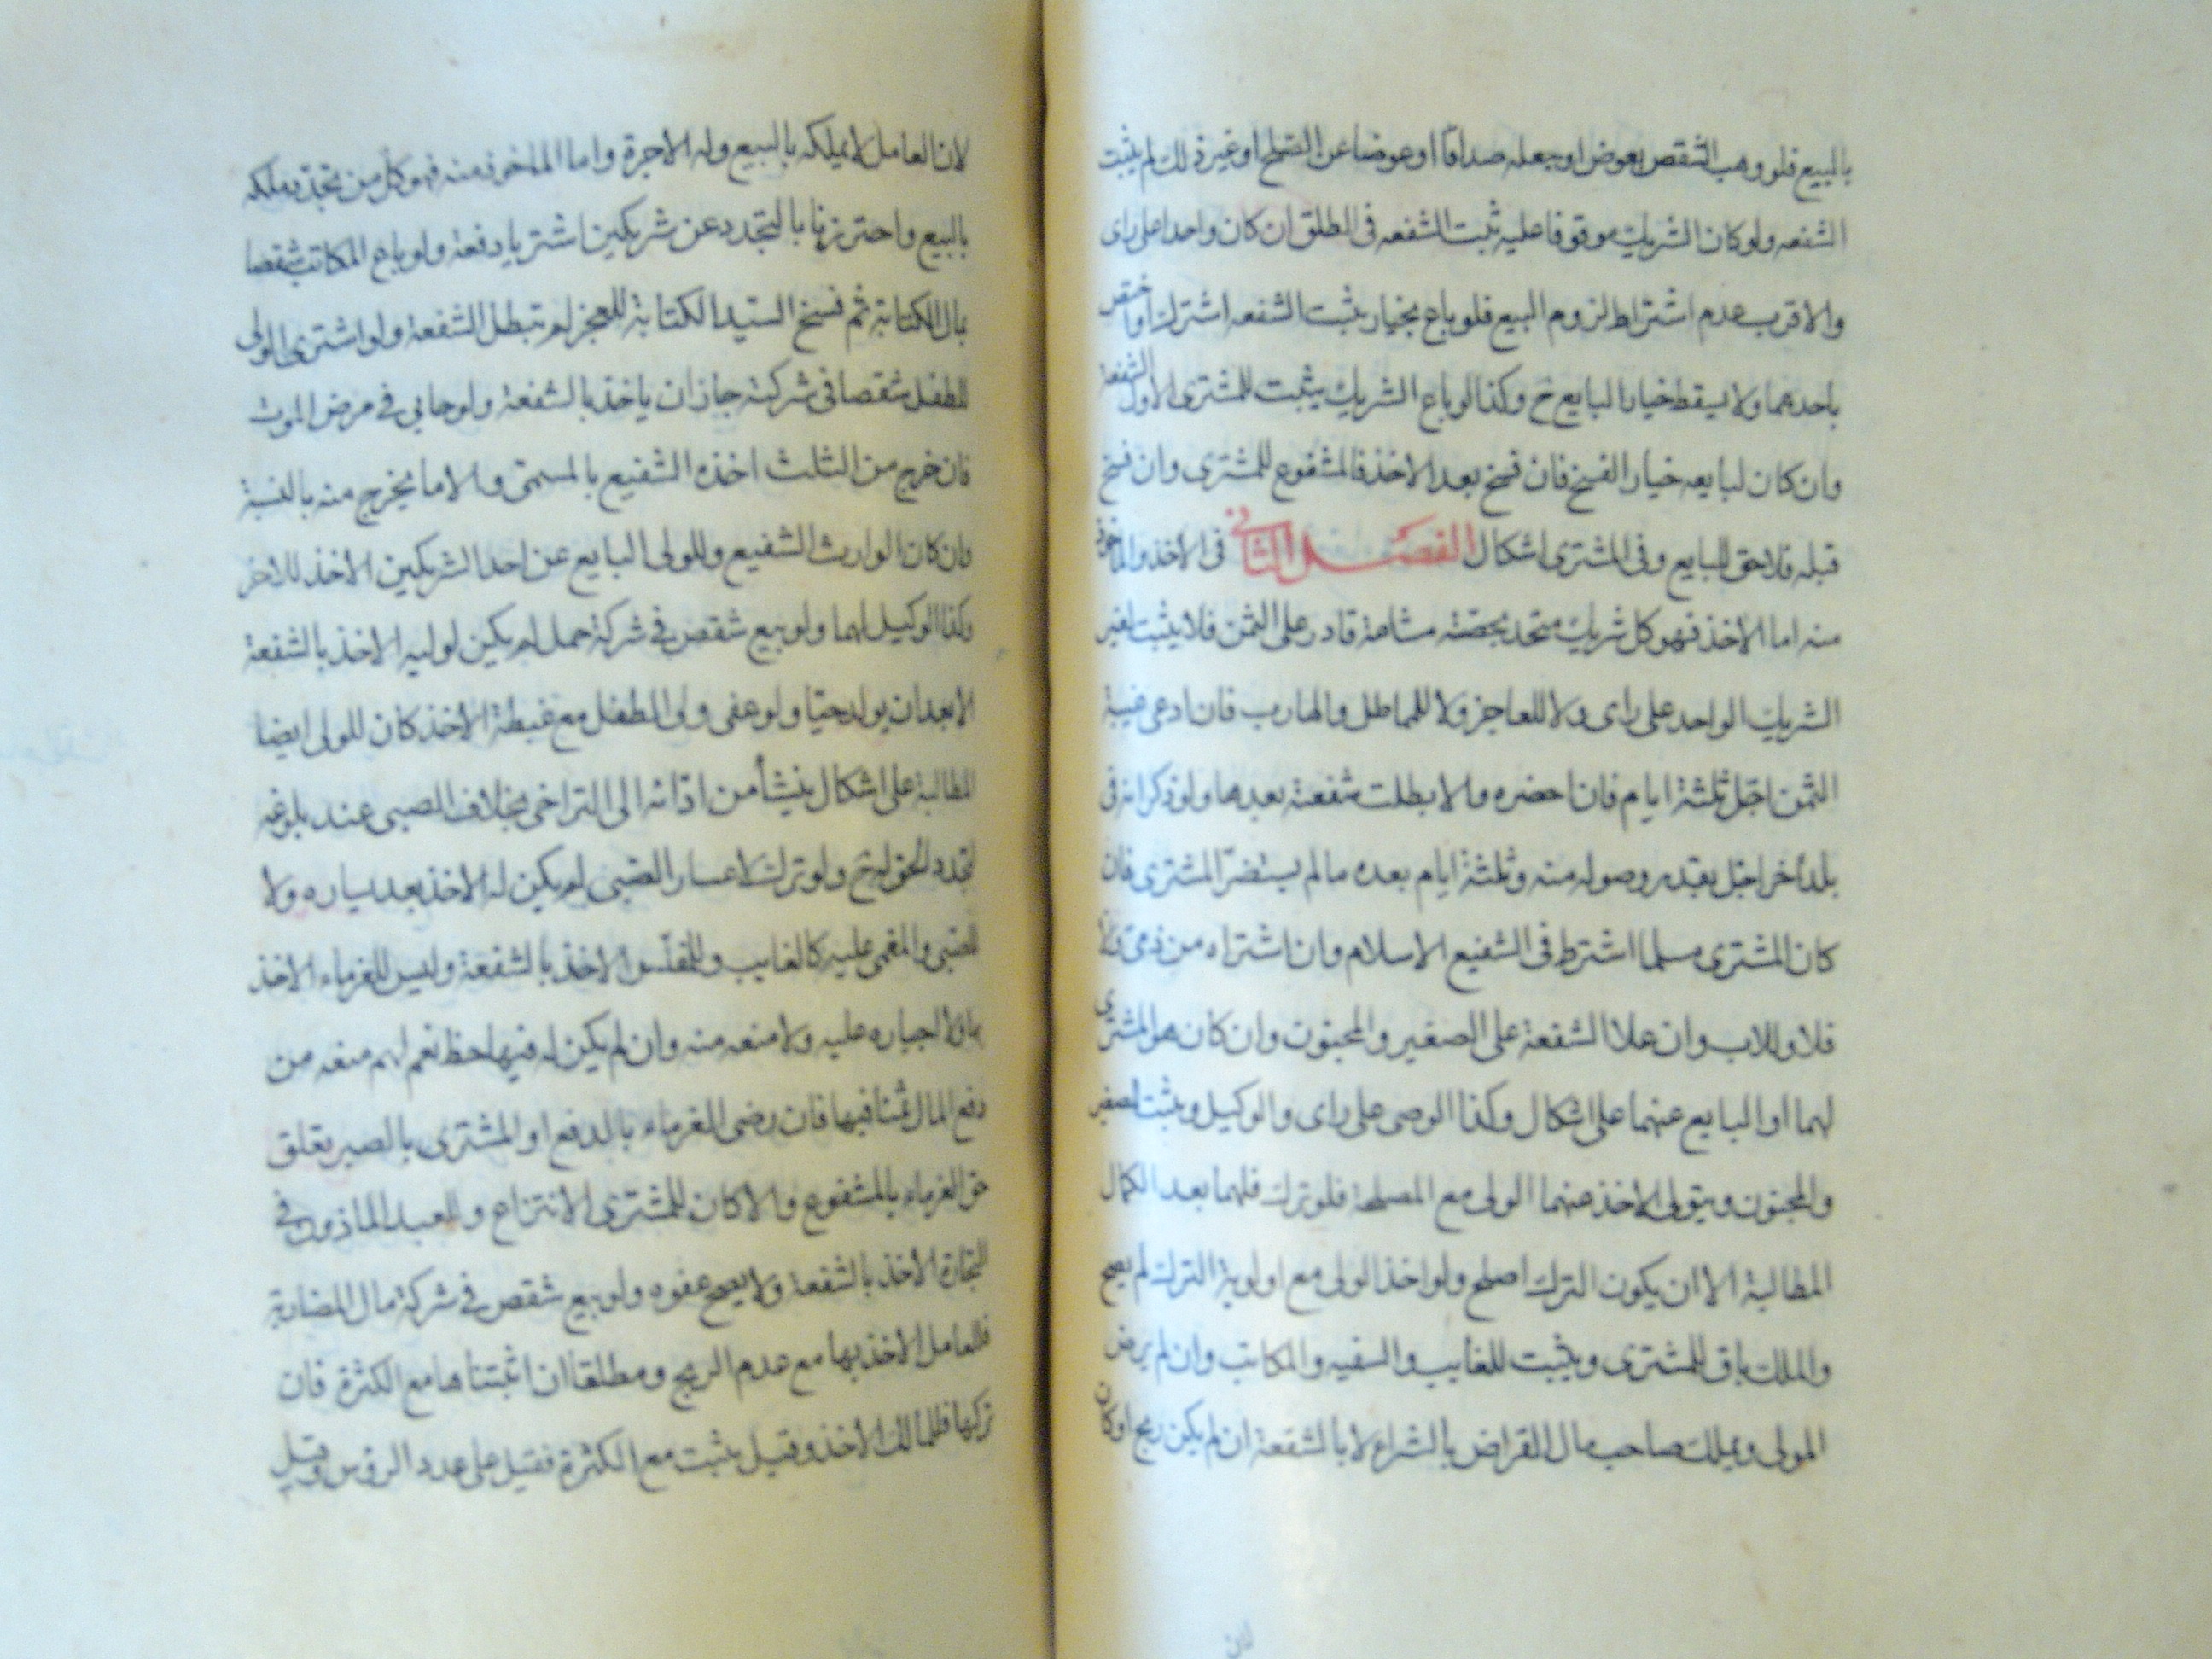 بالبيع فلو وهب الشقص بعوض او جعله صداقا او عوضا عن الصلح او غير ذلك لم يثبت
الشفعه ولو كان الشريك موقوفا عليه ثبت الشفعه فى الطلق ان كان واحدا على راى
والاقرب عدم اشتراط لزوم البيع فلو باع بخيار يثبت الشفعه اشترك او اختص
باحدهما ولا يسقط خيار البايع ح وكذا لو باع الشريك يثبت للمشترى الاول الشفعة
وان كان لبايعه خيار الفسخ فان فسخ بعد الاخذ فالمشفوع للمشترى وان فسخ
قبله فلا حق للبايع وفى المشترى اشكال الفصل الثانى فى الاخذ والماخوذ
منه اما الاخذ فهو كل شريك متحد بحصته مشاعة قادر على الثمن فلا يثبت لغير
الشريك الواحد على راى ولا للعاجز ولا للمماطل والهارب فان ادعى غيبة
الثمن اجل ثلثة ايام فان احضره والا بطلت شفعته بعدها ولو ذكر انه فى
بلد اخر اجل بقدر وصوله منه وثلثة ايام بعده ما لم يستضر المشترى فان
كان المشترى مسلما اشترط فى الشفيع الاسلام وان اشتراه من ذمى والا
فلا وللاب وان علا الشفعة على الصغير والمجنون وان كان هو المشترى
لهما او البايع عنهما على اشكال وكذا الوصى على راى والوكيل ويثبت للصغير
والمجنون ويتولى الاخذ عنهما الولى مع المصلحة فلو ترك فلهما بعد الكمال
المطالبة الا ان يكون الترك اصلح ولو اخذ الولى مع اولوية الترك لم يصح
والملك باق للمشترى ويثبت للغايب والسفيه والمكاتب وان لم يرض
المولى ويملك صاحب مال القراض بالشراء لا بالشفعة ان لم يكن ربح او كان
لان
لان العامل لا يملكه بالبيع وله الاجرة واما الماخوذ منه فهو كل من تجدد ملكه
بالبيع واحترزنا بالتجدد عن شريكين اشتريا دفعة ولو باع المكاتب شقصا
بمال الكتابة ثم فسخ السيد الكتابة للعجز لم تبطل الشفعة ولو اشترى الولى
للطفل شقصا فى شركته جاز ان ياخذ بالشفعة ولو حابى فى مرض الموت
فان خرج من الثلث اخذه الشفيع بالمسمى والا ما يخرج منه بالنسبة
وان كان الوارث الشفيع وللولى البايع عن احد الشريكين الاخذ للاخر
وكذا الوكيل لهما ولو بيع شقص فى شركة حمل لم يكن لوليه الاخذ بالشفعة
الا بعد ان يولد حيا ولو عفى ولى الطفل مع غبطة الاخذ كان للولى ايضا
المطالبة على اشكال ينشأ من ادائه الى التراخى بخلاف الصبى عند بلوغه
لتجدد الحق له ح ولو ترك لاعسار الصبى لم يكن له الاخذ بعد يساره ولا
للصبى والمغمى عليه كالغايب وللمفلس الاخذ بالشفعة وليس للغرماء الاخذ
بها ولا اجباره عليه ولا منعه منه وان لم يكن له فيها حظ نعم لهم منعه من
دفع المال ثمنا فيها فان رضى الغرماء بالدفع او المشترى بالصبر تعلق
حق الغرماء بالمشفوع والا كان للمشترى الانتزاع وللعبد الماذون فى
التجارة الاخذ بالشفعة ولا يصح عفوه ولو بيع شقص فى شركة مال المضاربة
فللعامل الاخذ بها مع عدم الربح ومطلقا ان اثبتناها مع الكثرة فان
تركها فللمالك الاخذ وقيل يثبت مع الكثرة فقيل على عدد الرؤس وقيل